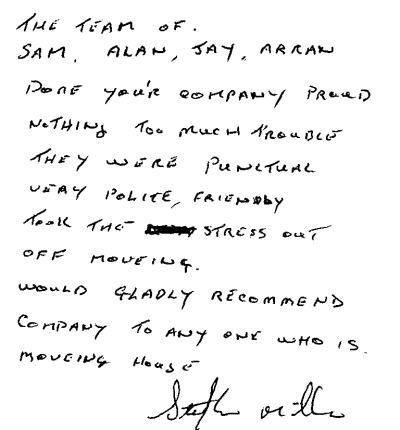 THE TEAM OF.
SAM, ALAN, JAY, ARRAN
DONE YOU'R COMPANY PROUD
NOTHING TOO MUCH TROUBLE
THEY WERE PUNCTUAL
VERY POLITE, FRIENDLY
TOOK THE STRESS OUT
OFF MOVEING.
WOULD GLADLY RECOMMEND
COMPANY TO ANY ONE WHO IS.
MOVEING HOUSE